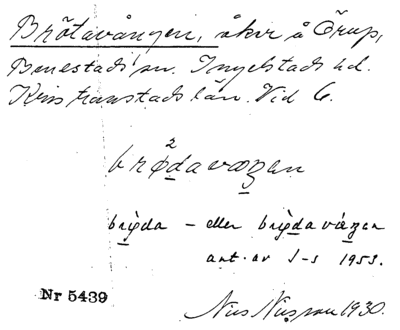 Brötavången, åker å Örup,
Benestads sn. Ingelstads hd.
Kristianstads län. Vid 6.
brødavæŋen
brø̀da – eller brø̀davæŋen
ant. av I–s 1953.
Nr 5439
Nils Nilsson 1930.